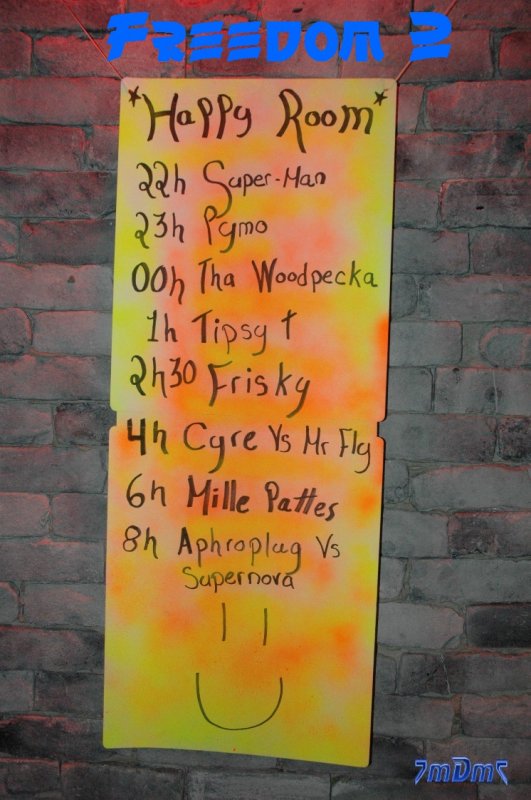 Freedom 2
*Happy Room*
22h Super-Man
23h Pymo
00h Tha Woodpecka
1h Tipsy t
2h30 Frisky
4h Cyre Vs Mr Fly
6h Mille Pattes
8h Aphroplug Vs
Supernova